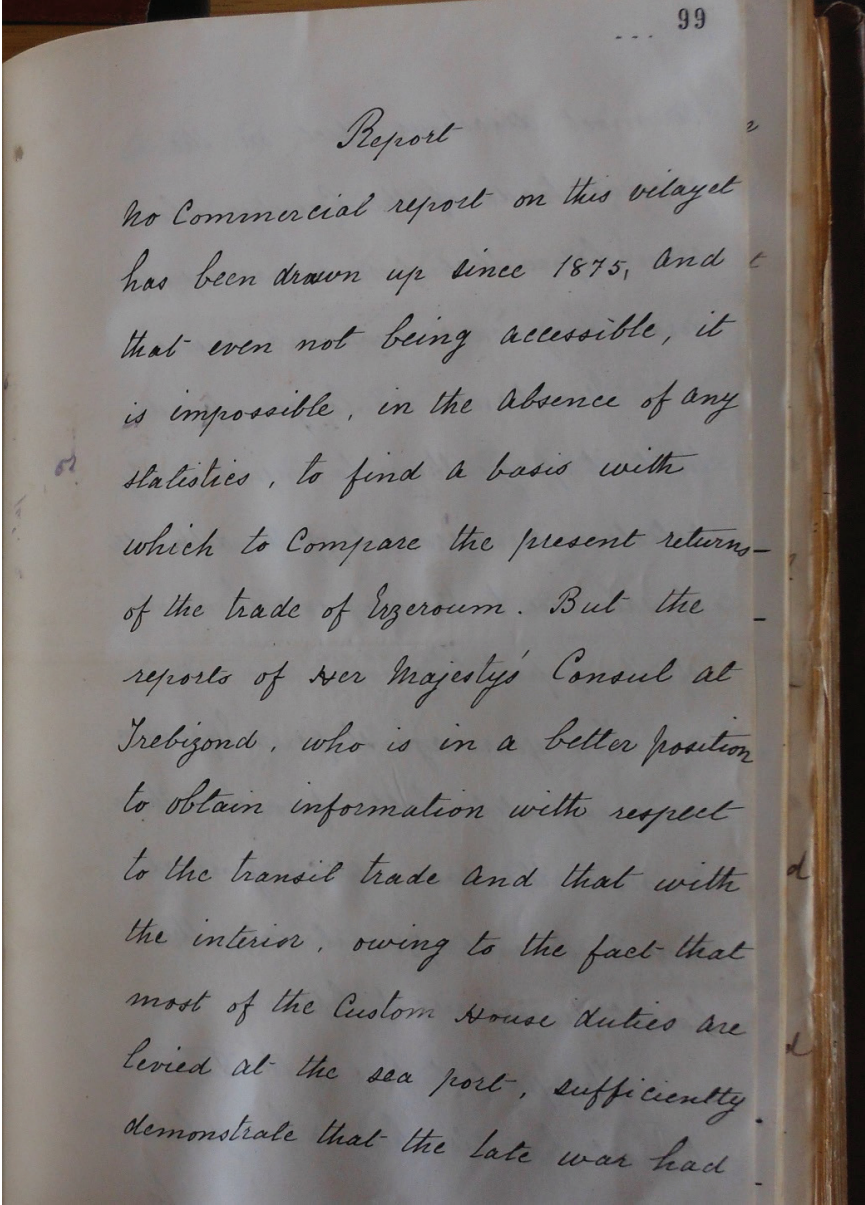 99
Report
No Commercial report on this vilayet
has been drawn up since 1875, and
that even not being accessible, it
is impossible, in the absence of any
statistics, to find a basis with
which to compare the present returns
of the trade of Erzeroum. But the
reports of Her Majesty's Consul at
Trebizond, who is in a better position
to obtain information with respect
to the transit trade and that with
the interior, owing to the fact that
most of the Custom House duties are
levied at the sea port, sufficiently
demonstrate that the late war had